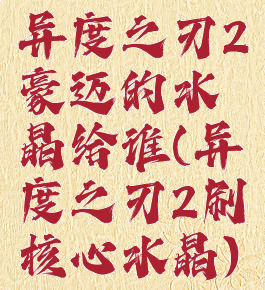 异度之刃2
豪迈的水
晶给谁(异
度之刃2刷
核心水晶)